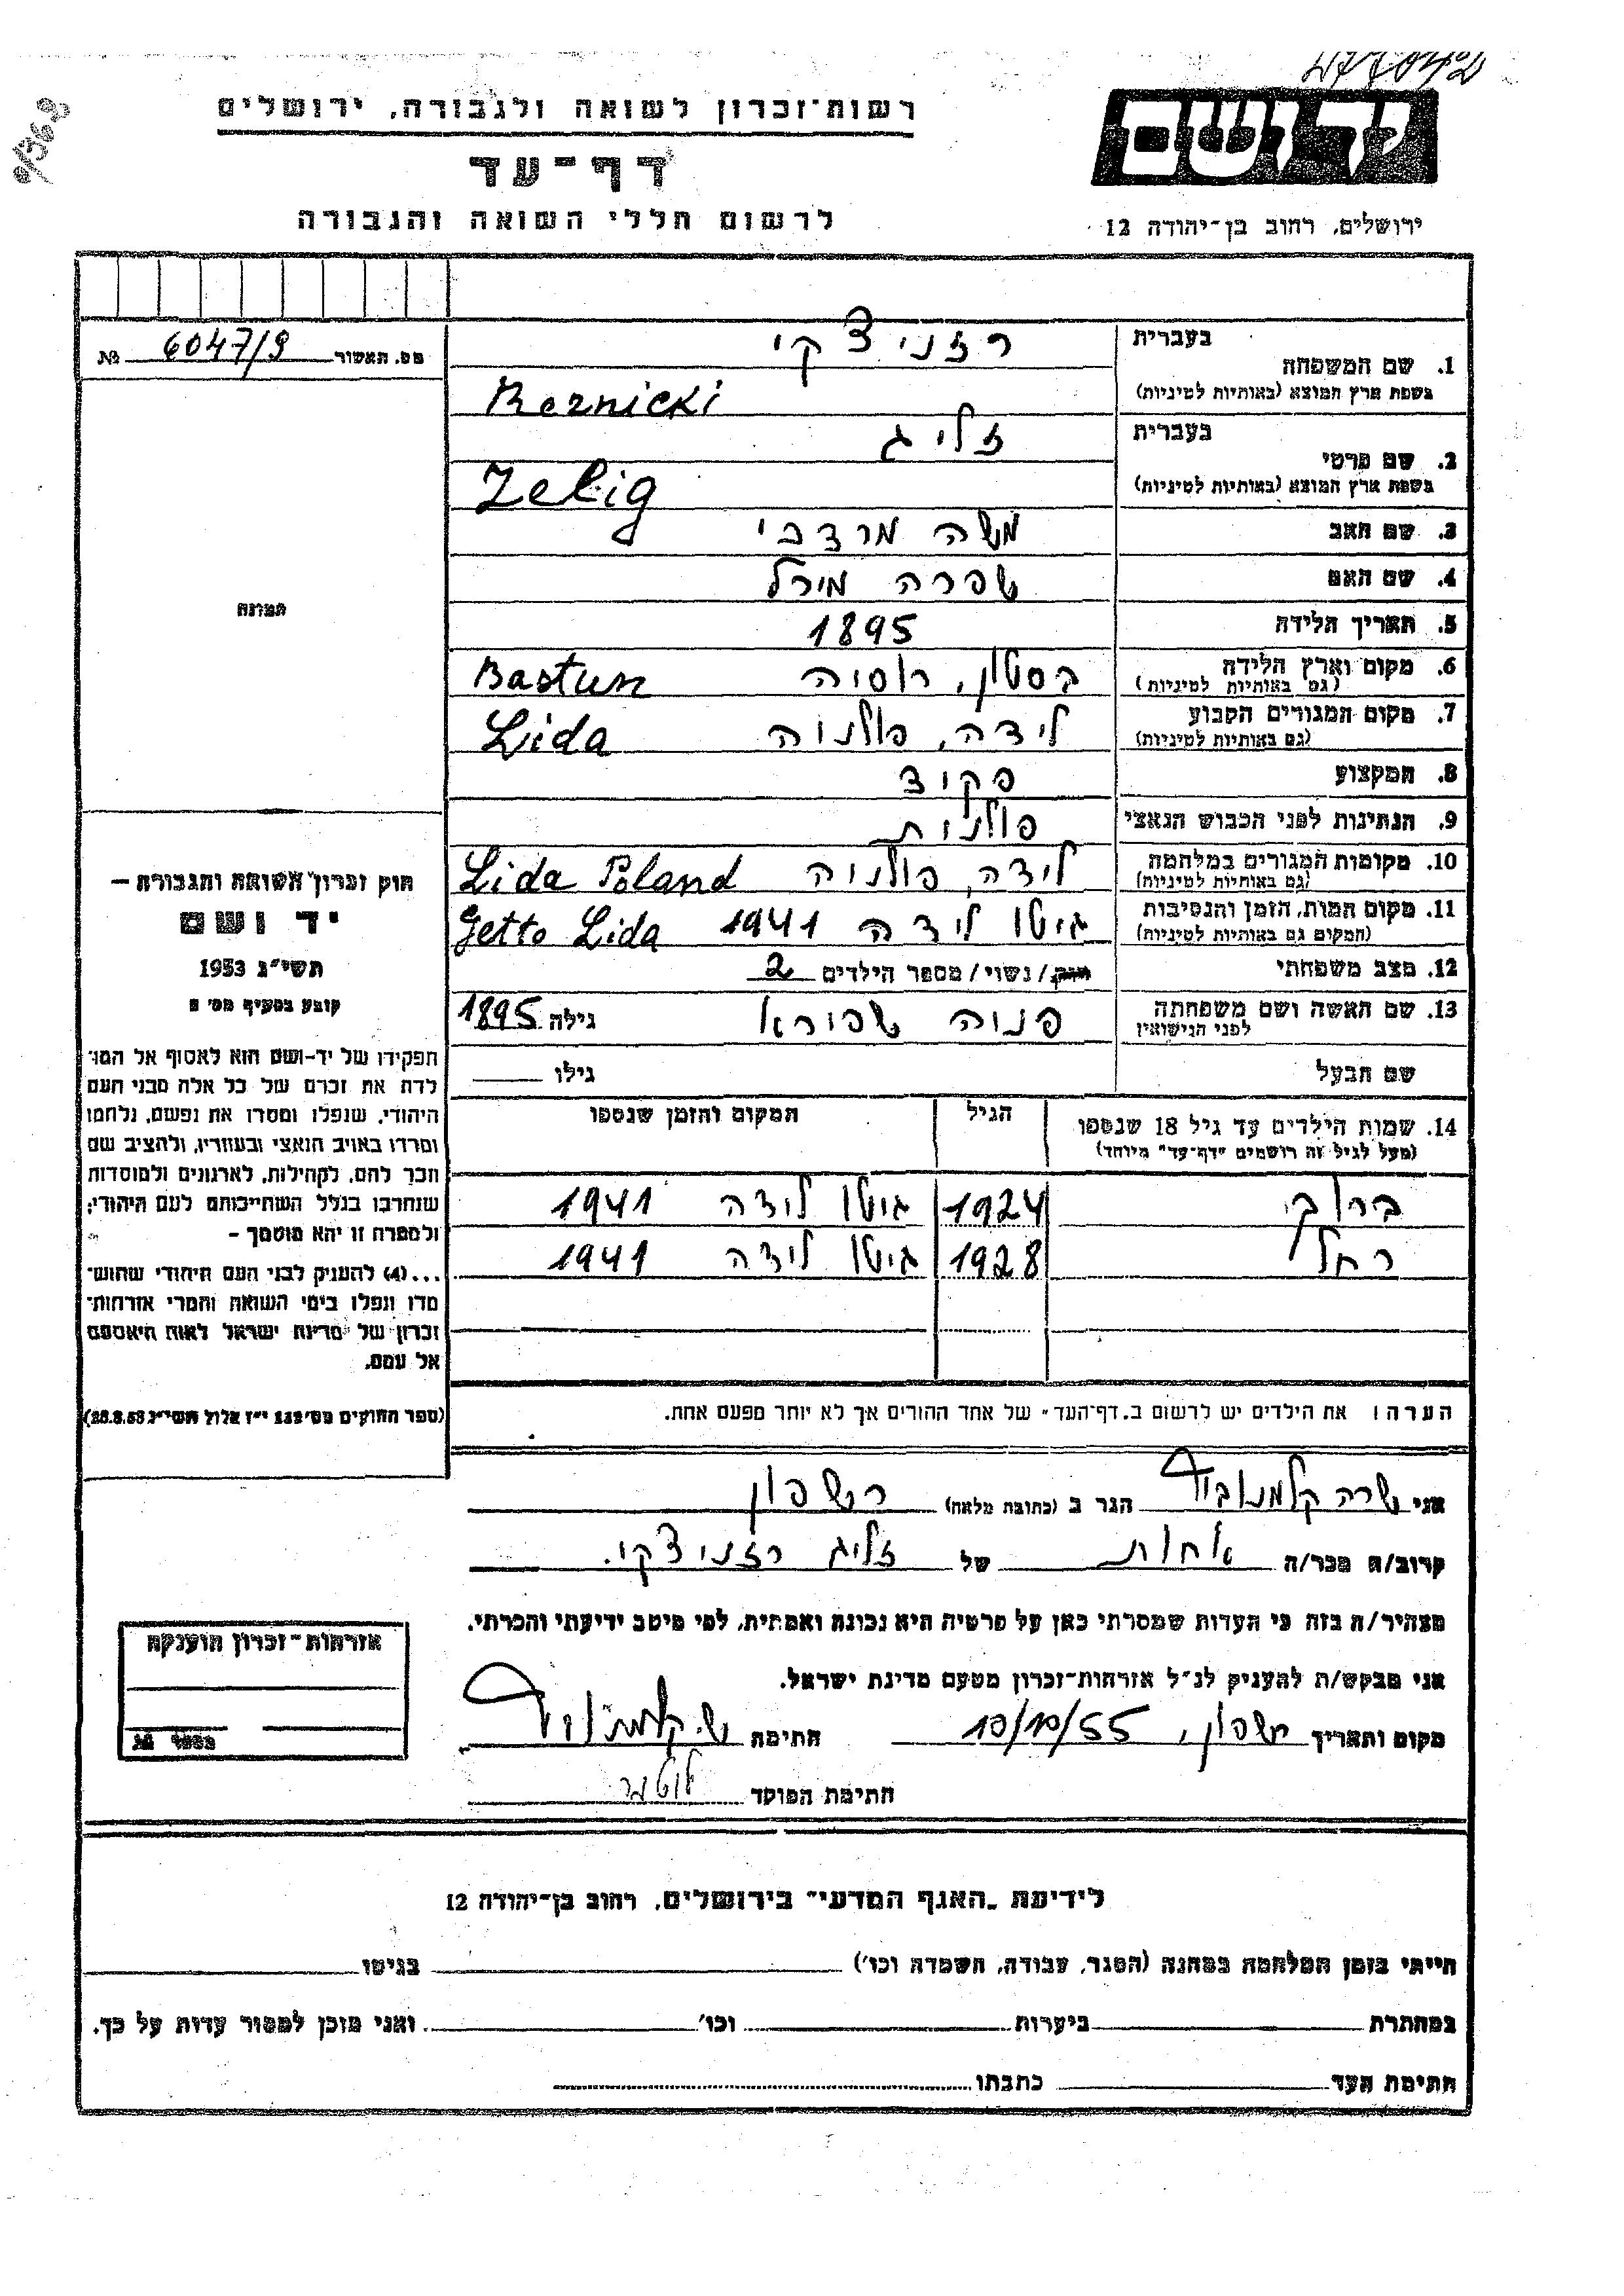 רשות־זכרון לשואה ולגבורה, ירושלים
דף־עד
לרשום חללי השואה והגבורה
ירושלים, רחוב בן־יהודה 12
בעברית רזניצקי
1. שם המשפחה
בשפת ארץ המוצא (באותיות לטיניות) Reznicki
בעברית זליג
2. שם פרטי
בשפת ארץ המוצא (באותיות לטיניות) Zelig
3. שם האב משה מרדכי
4. שם האם שפרה מירל
5. תאריך הלידה 1895
6. מקום וארץ הלידה בסטון, רוסיה Bastun
(גם באותיות לטיניות)
7. מקום המגורים הקבוע לידה, פולניה Lida
(גם באותיות לטיניות)
8. המקצוע פקיד
9. הנתינות לפני הכבוש הנאצי פולנית
10. מקומות המגורים במלחמה לידה, פולניה Lida Poland
(גם באותיות לטיניות)
11. מקום המות, הזמן והנסיבות גיטו לידה 1941 Getto Lida
(המקום גם באותיות לטיניות)
12. מצב משפחתי רווק/ נשוי/ מספר הילדים 2
13. שם האשה ושם משפחתה פניה שפירא גילה 1895
לפני הנישואין
שם הבעל גילו
14. שמות הילדים עד גיל 18 שנספו הגיל המקום והזמן שנספו
(מעל לגיל זה רושמים "דף־עד" מיוחד)
ברוך 1924 גיטו לידה 1941
רחל 1928 גיטו לידה 1941
הערה: את הילדים יש לרשום ב„דף־העד" של אחד ההורים אך לא יותר מפעם אחת.
מס. תאשור 6047/9 №
תמונה
חוק זכרון השואה והגבורה —
יד ושם
תשי"ג 1953
קובע בסעיף מס' 2
תפקידו של יד-ושם הוא לאסוף אל המו־
לדת את זכרם של כל אלה מבני העם
היהודי, שנפלו ומסרו את נפשם, נלחמו
ומרדו באויב הנאצי ובעוזריו, ולהציב שם
וזכר להם, לקהילות, לארגונים ולמוסדות
שנחרבו בגלל השתייכותם לעם היהודי;
ולמטרה זו יהא מוסמך —
...(4) להעניק לבני העם היהודי שהוש־
מדו ונפלו בימי השואה והמרי אזרחות־
זכרון של מדינת ישראל לאות היאספם
אל עמם.
(ספר החוקים מס' 132 י"ז אלול תשי"ג 28.8.53)
אני שרה קלמנוביץ הגר ב (כתובת מלאה) רשפון
קרוב/ה מכר/ה אחות של זליג רזניצקי.
מצהיר/ה בזה כי העדות שמסרתי כאן על פרטיה היא נכונה ואמתית, לפי מיטב ידיעתי והכרתי.
אני מבקש/ת להעניק לנ"ל אזרחות־זכרון מטעם מדינת ישראל.
מקום ותאריך רשפון, 10/10/55 חתימה ש. קלמנוביץ
חתימת הפוקד
אזרחות־זכרון הוענקה
לידיעת „האגף המדעי" בירושלים, רחוב בן־יהודה 12
הייתי בזמן המלחמה במחנה (הסגר, עבודה, השמדה וכו') בגיטו
במחתרת ביערות וכו' ואני מוכן למסור עדות על כך.
חתימת העד כתבתו